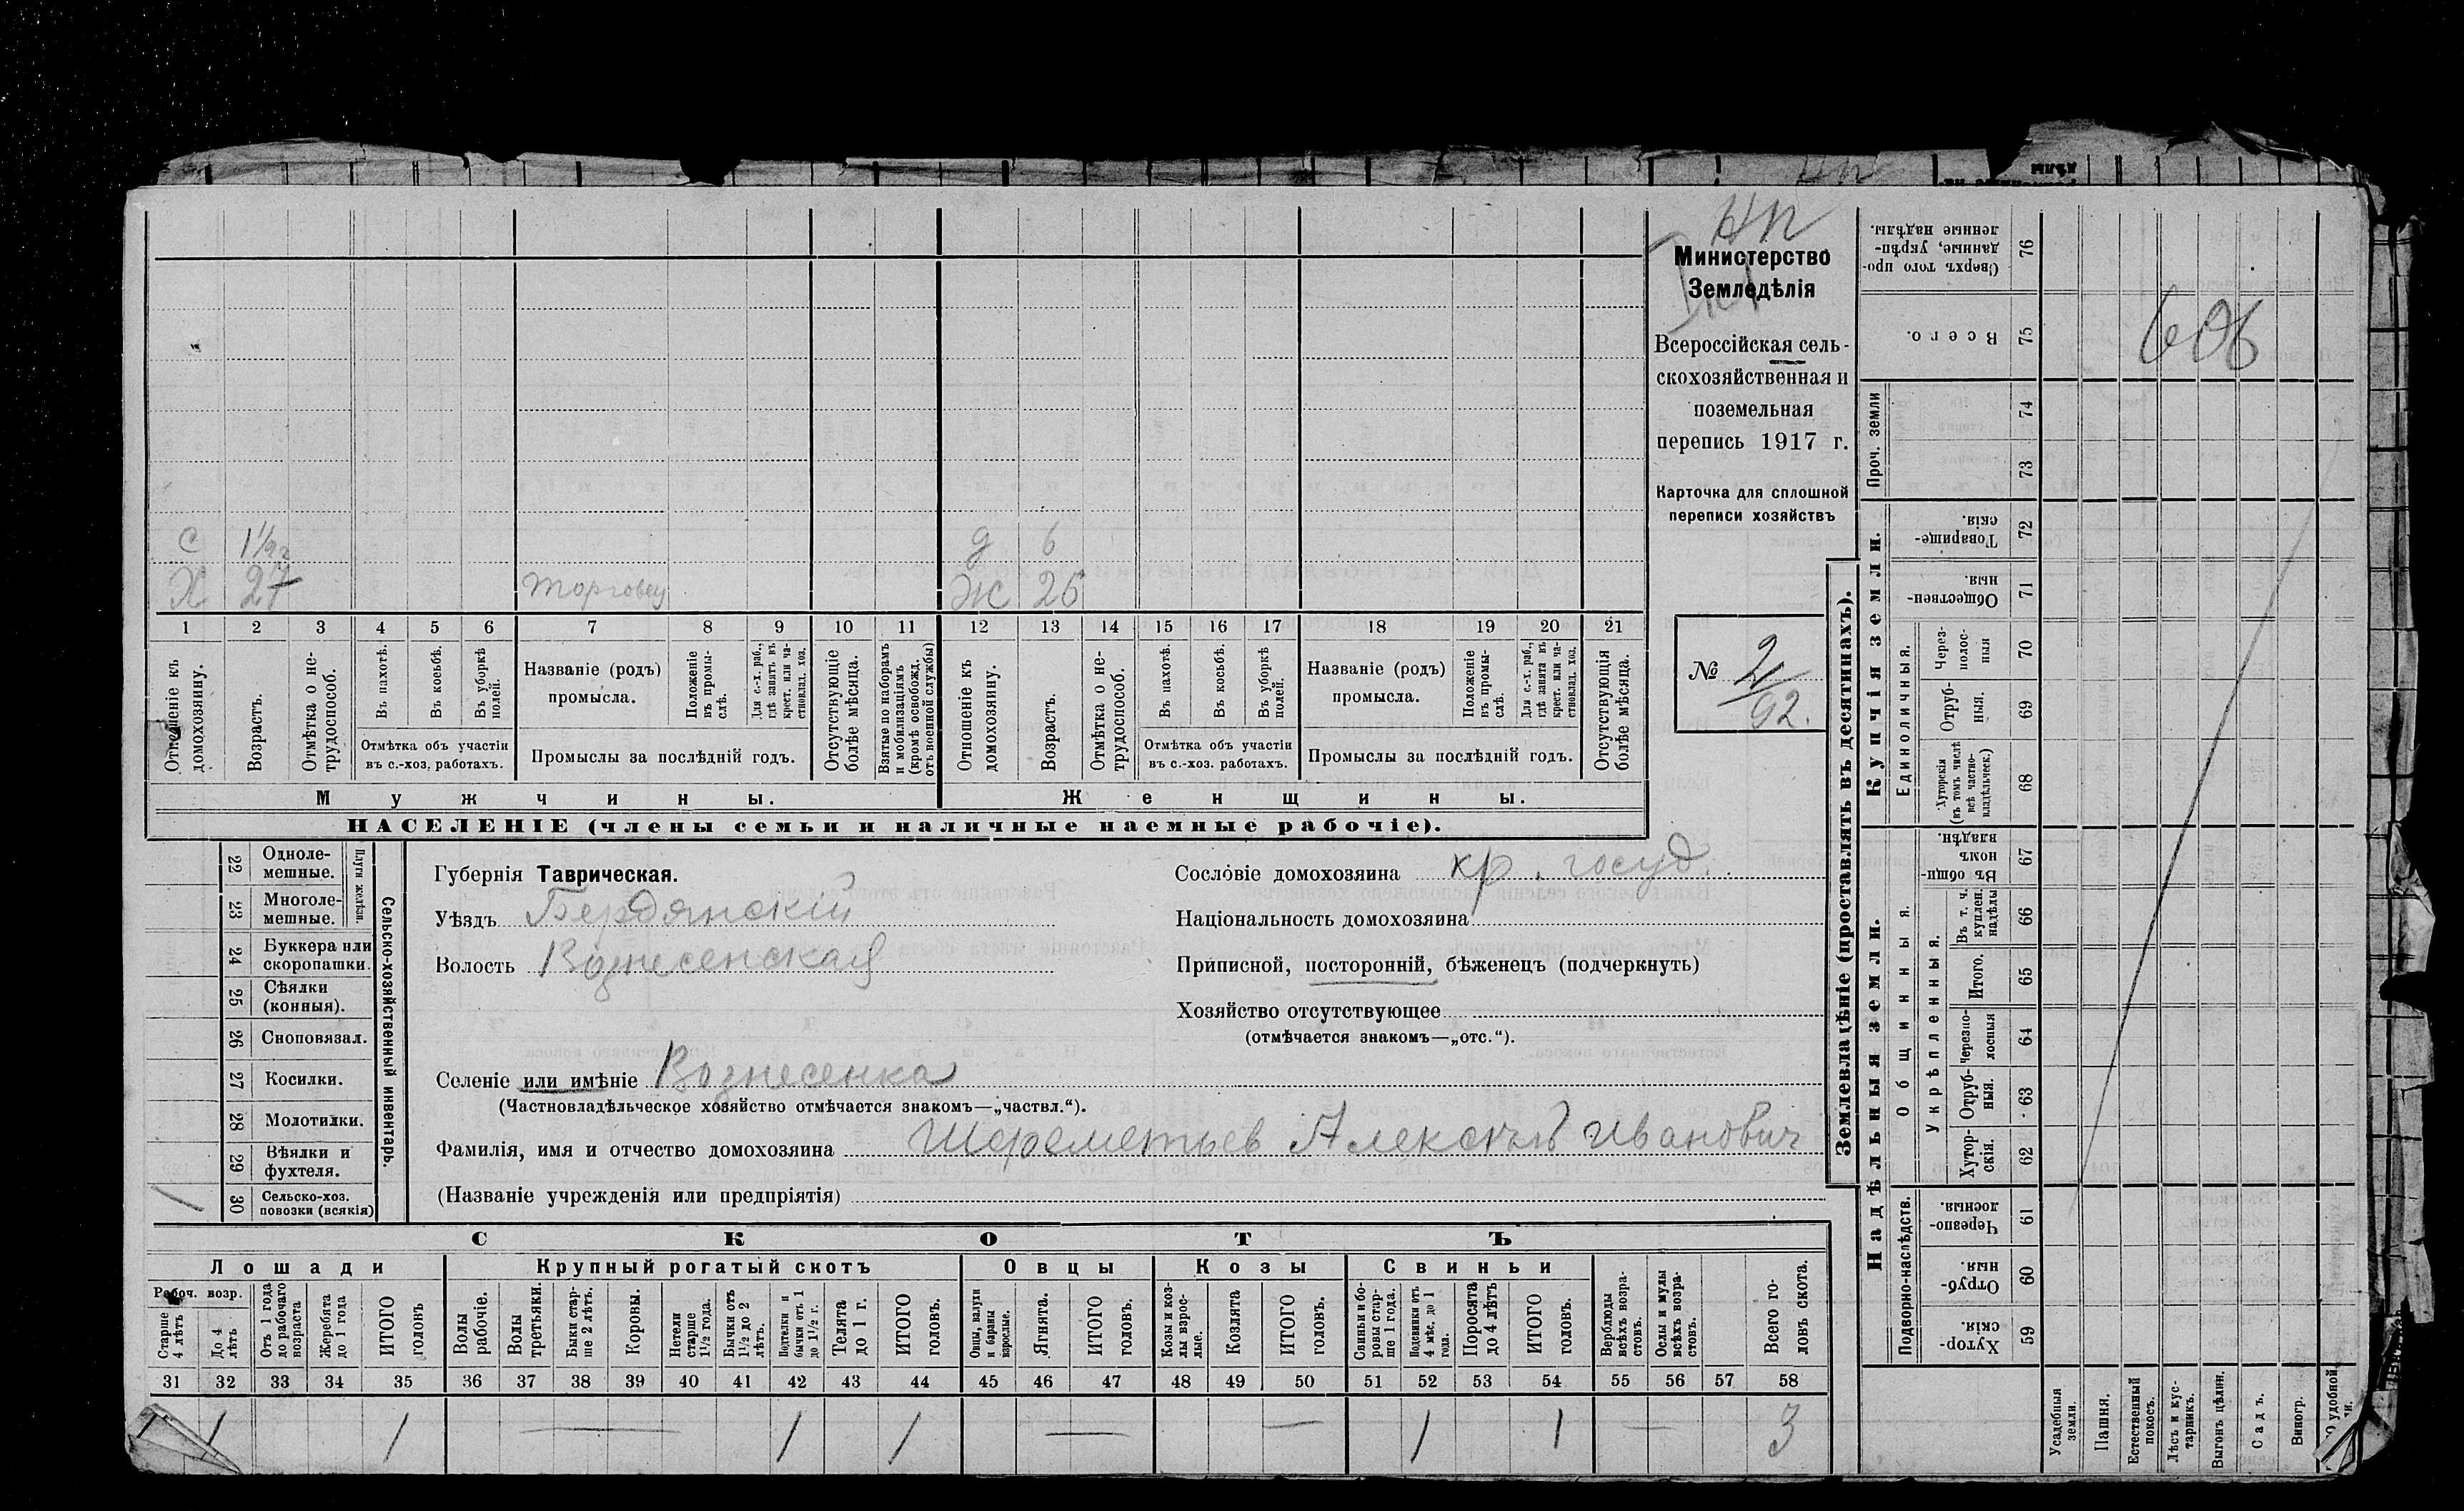 НП
Министерство
Земледѣлія
Всероссійская сель-
скохозяйственная и
поземельная
перепись 1917 г.
Карточка для сплошной
переписи хозяйствъ
№ 21/92.
С 1½ г Д 6
Х 27 торговец Ж 26
1 2 3 4 5 6 7 8 9 10 11 12 13 14 15 16 17 18 19 20 21
Отношеніе къ домохозяину.
Возрастъ.
Отмѣтка о не-трудоспособ.
Въ пахотѣ.
Въ косьбѣ.
Въ уборкѣ полей.
Отмѣтка объ участіи
въ с.-хоз. работахъ.
Названіе (родъ)
промысла.
Положеніе въ промы-слѣ.
Для с.-х. раб., гдѣ занятъ въ крест. или ча-стновлад. хоз.
Промыслы за послѣдній годъ.
Отсутствующіе болѣе мѣсяца.
Взятые по наборамъ и мобилизаціямъ (кромѣ освобожд. отъ военной службы)
Отношеніе къ домохозяину.
Возрастъ.
Отмѣтка о не-трудоспособ.
Въ пахотѣ.
Въ косьбѣ.
Въ уборкѣ полей.
Отмѣтка объ участіи
въ с.-хоз. работахъ.
Названіе (родъ)
промысла.
Положеніе въ промы-слѣ.
Для с.-х. раб., гдѣ занята въ крест. или ча-стновлад. хоз.
Промыслы за послѣдній годъ.
Отсутствующія болѣе мѣсяца.
Мужчины. Женщины.
НАСЕЛЕНІЕ (члены семьи и наличные наемные рабочіе).
22 Одноле-мешные.
23 Многоле-мешные.
Плуги желѣзн.
24 Буккера или скоропашки.
25 Сѣялки (конныя).
26 Сноповязал.
27 Косилки.
28 Молотилки.
29 Вѣялки и фухтеля.
1 30 Сельско-хоз. повозки (всякія)
Сельско-хозяйственный инвентарь.
Губернія Таврическая.
Уѣздъ Бердянскій
Волость Вознесенская
Селеніе или имѣніе Вознесенка
(Частновладѣльческое хозяйство отмѣчается знакомъ—„частвл.“).
Фамилія, имя и отчество домохозяина Шереметьев Алексѣй Иванович
(Названіе учрежденія или предпріятія)
Сословіе домохозяина кр. госуд.
Національность домохозяина
Приписной, посторонній, бѣженецъ (подчеркнуть)
Хозяйство отсутствующее
(отмѣчается знакомъ—„отс.“).
СКОТЪ
Лошади Крупный рогатый скотъ Овцы Козы Свиньи
Рабоч. возр.
Старше 4 лѣтъ
До 4 лѣтъ
Отъ 1 года до рабочаго возраста
Жеребята до 1 года
ИТОГО головъ
Волы рабочіе.
Волы третьяки.
Быки стар-ше 2 лѣтъ.
Коровы.
Нетели старше 1½ года.
Бычки отъ 1½ до 2 лѣтъ.
Подтелки и бычки отъ 1 до 1½ г.
Телята до 1 г.
ИТОГО головъ.
Овцы, валухи и бараны взрослые.
Ягнята.
ИТОГО головъ.
Козы и коз-лы взрос-лые.
Козлята
ИТОГО головъ.
Свиньи и бо-ровы стар-ше 1 года.
Подсвинки отъ 4 мѣс. до 1 года.
Поросята до 4 лѣтъ
ИТОГО головъ.
Верблюды всѣхъ возра-стовъ.
Ослы и мулы всѣхъ возра-стовъ.
Всего го-ловъ скота.
31 32 33 34 35 36 37 38 39 40 41 42 43 44 45 46 47 48 49 50 51 52 53 54 55 56 57 58
1 1 — 1 1 — — 1 1 — 3
Землевладѣніе (проставлять въ десятинахъ).
Сверхъ того про-данные, укрѣп-ленные надѣлы. 76
Всего. 75
606
Проч. земли 74
73
Купчія земли.
Товарище-скія. 72
Обществен-ныя. 71
Единоличныя.
Через-полос-ныя 70
Отруб-ныя. 69
Хуторскія (въ томъ числѣ всѣ частно-владѣльческ.) 68
Надѣльныя земли.
Общинныя.
Въ общи-номъ владѣн. 67
Укрѣпленныя.
Въ т. ч. куплен. надѣлы 66
Итого. 65
Черезпо-лосныя 64
Отруб-ныя. 63
Хутор-скія. 62
Подворно-наслѣдств.
Черезпо-лосныя. 61
Отруб-ныя. 60
Хутор-скія. 59
Усадебныя земли.
Пашня.
Естественный покосъ.
Лѣсъ и кус-тарникъ.
Выгонъ цѣлин.
Садъ.
Виногр.
удобной